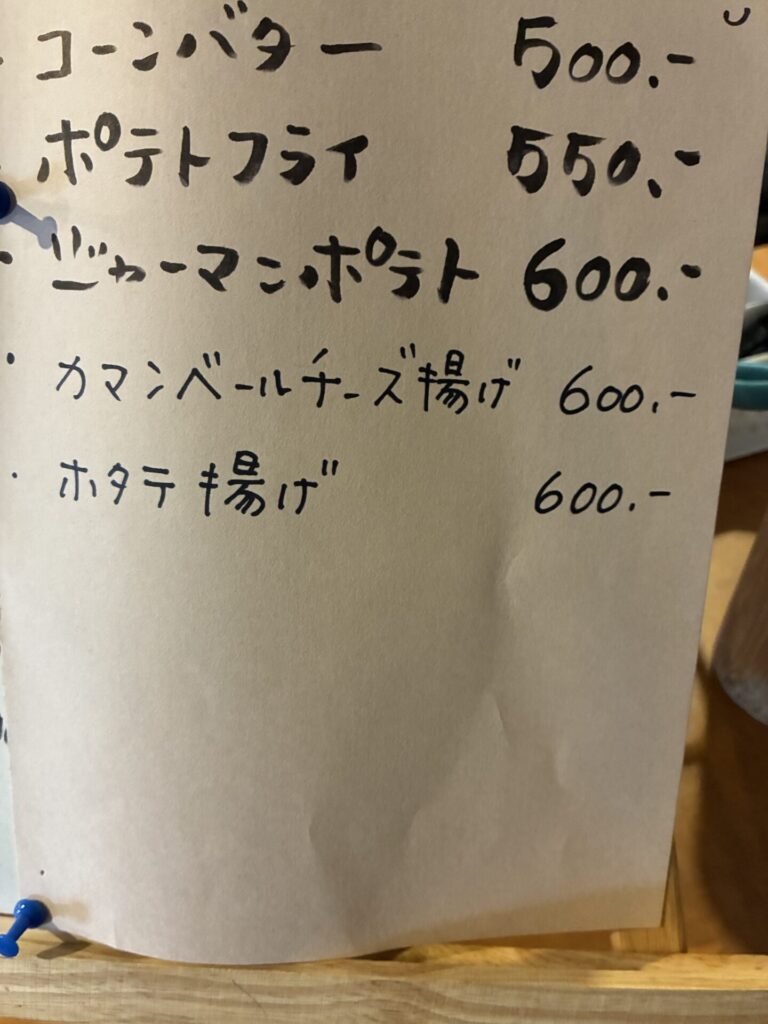 コーンバター 500.-
ポテトフライ 550.-
・ジャーマンポテト 600.-
・カマンベールチーズ揚げ 600.-
・ホタテ揚げ 600.-